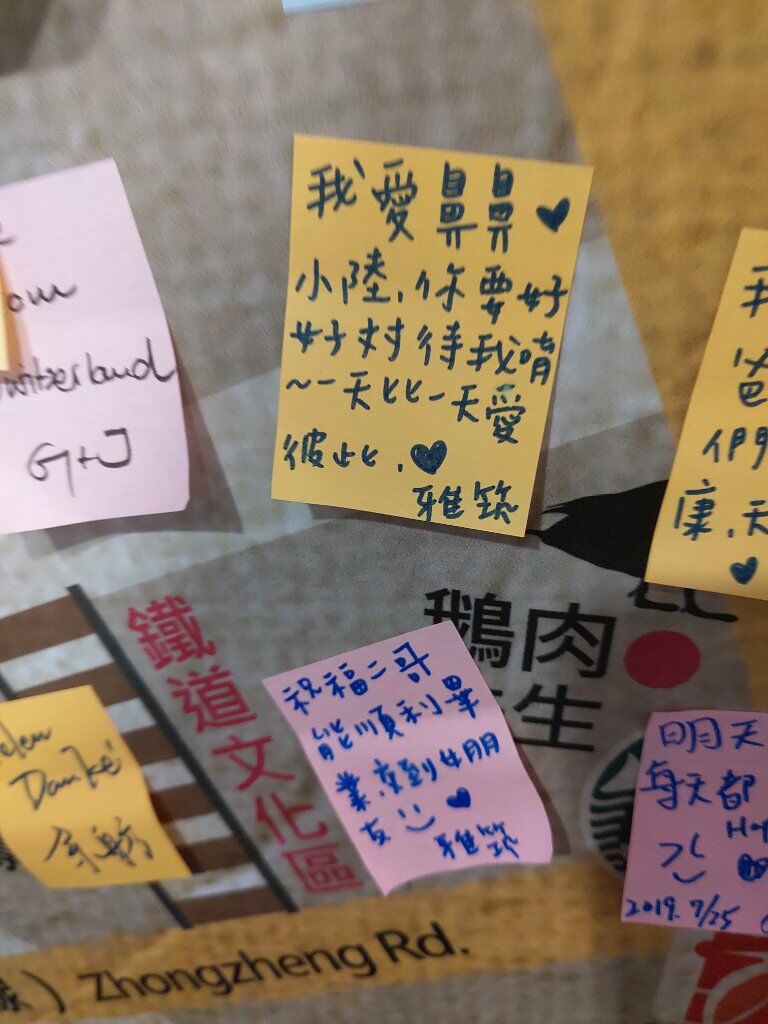 our
witzerland
G+J
我愛鼻鼻♥
小陸,你要好
好對待我唷
~一天比一天愛
彼此,♥
雅筑
我
爸
們
康,天
♥
鐵道文化區
鵝肉
生
祝福二哥
能順利畢
業,交到女朋
友 ♥
雅筑
Danke
明天
每天都
2019.7/25
) Zhongzheng Rd.